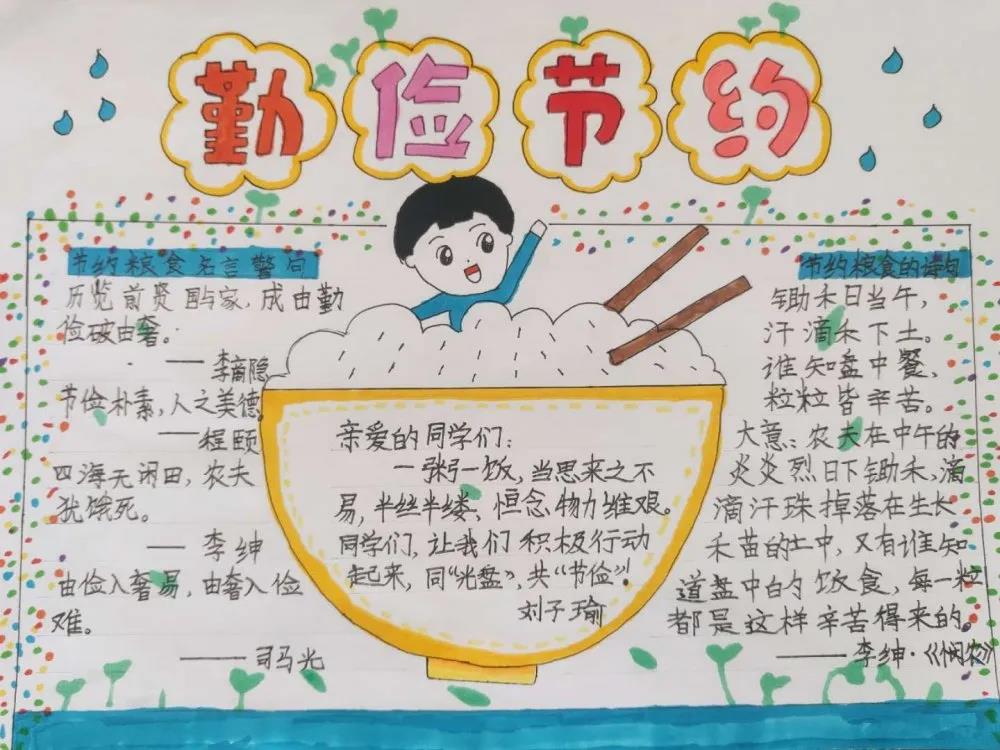 勤俭节约
节约粮食名言警句
历览前贤国与家，成由勤
俭破由奢。
——李商隐
节俭朴素，人之美德
——程颐
四海无闲田，农夫
犹饿死。
——李绅
由俭入奢易，由奢入俭
难。
——司马光
亲爱的同学们：
一粥一饭，当思来之不
易，半丝半缕、恒念物力维艰。
同学们，让我们积极行动
起来，同“光盘”，共“节俭”！
刘子瑜
节约粮食的诗句
锄禾日当午，
汗滴禾下土。
谁知盘中餐，
粒粒皆辛苦。
大意：农夫在中午的
炎炎烈日下锄禾，滴
滴汗珠掉落在生长
禾苗的土中，又有谁知
道盘中的饭食，每一粒
都是这样辛苦得来的。
——李绅·《悯农》